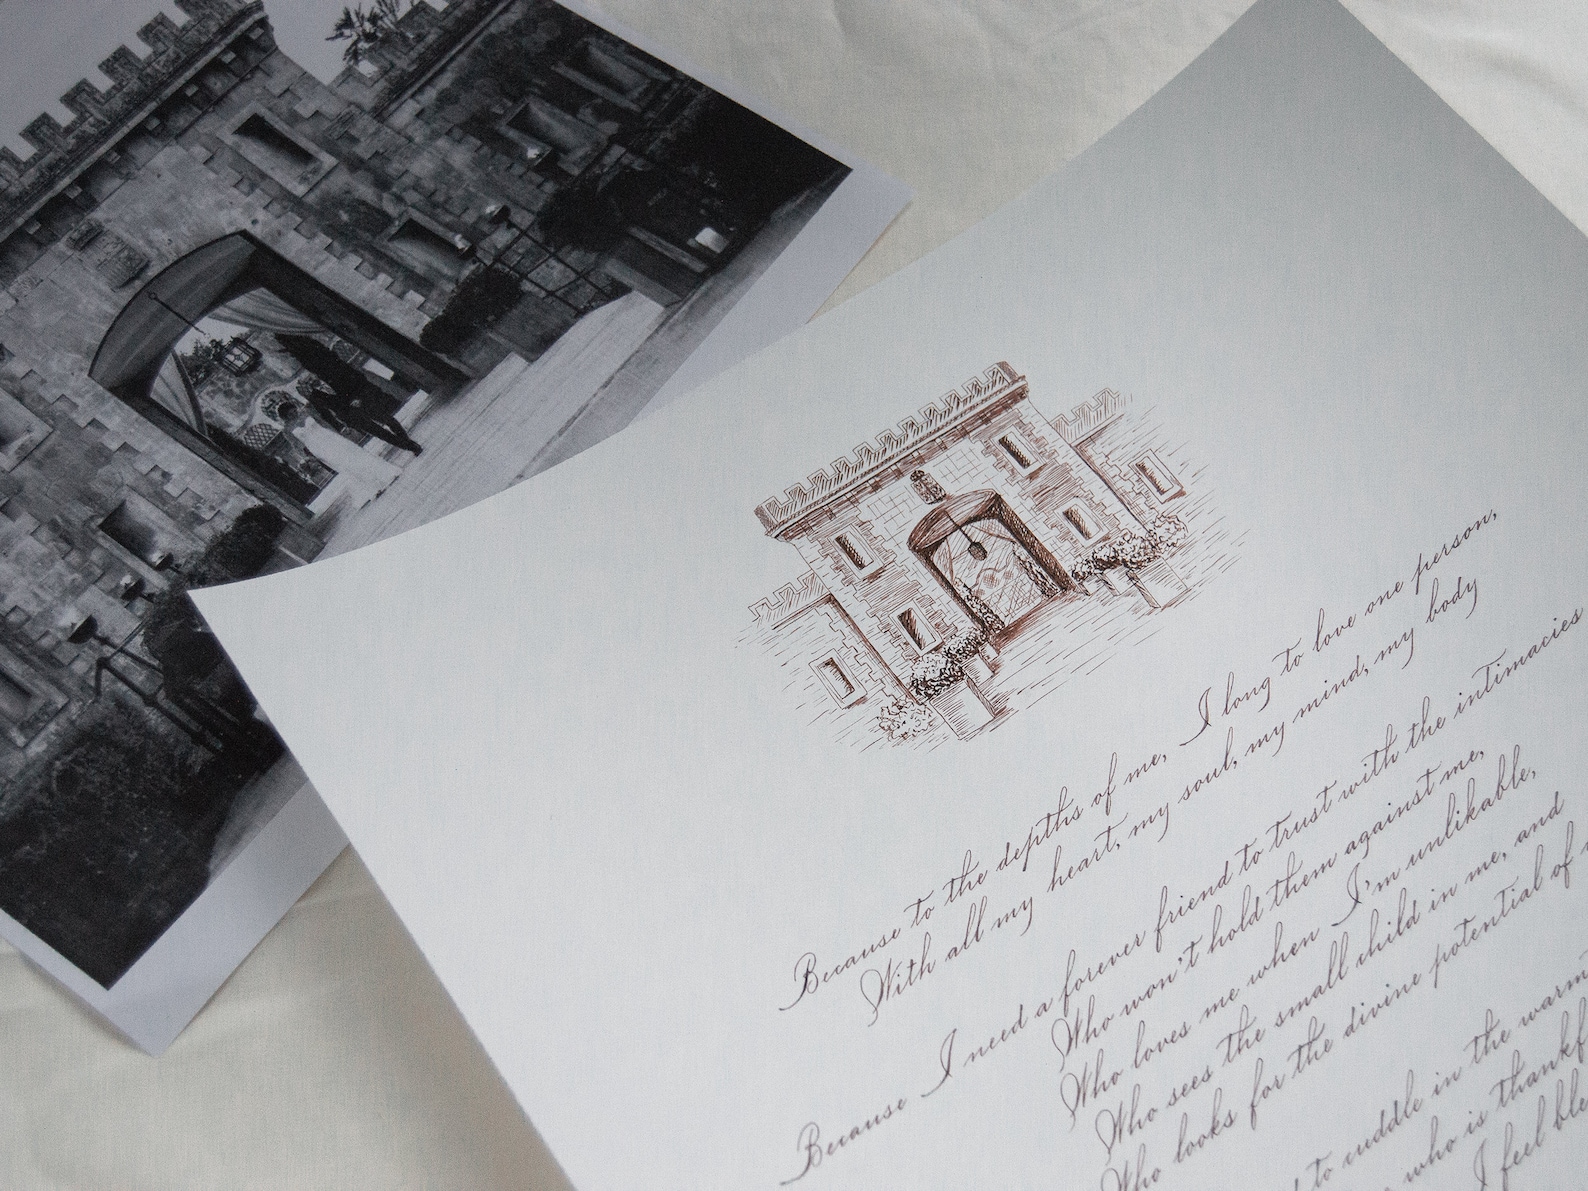 Because to the depths of me, I long to love one person,
With all my heart, my soul, my mind, my body
Because I need a forever friend to trust with the intimacies
Who won't hold them against me,
Who loves me when I'm unlikable,
Who sees the small child in me, and
Who looks for the divine potential of
to cuddle in the warm
who is thankf
I feel ble